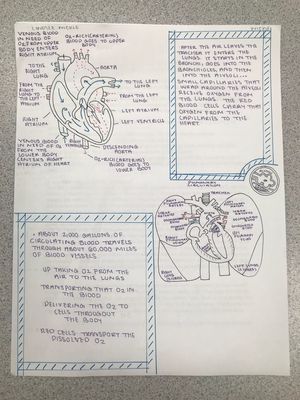 VENOUS BLOOD
IN NEED OF
O2 FROM UPPER
BODY ENTERS
RIGHT ATRIUM
O2-RICH (CARTERING)
BLOOD GOES TO UPPER
BODY
TO THE
RIGHT
LUNG
AORTA
TO THE LEFT
LUNG
FROM THE
RIGHT
LUNG TO
THE LEFT
ATRIUM
FROM THE LEFT
LUNG
LEFT ATRIUM
RIGHT
ATRIUM
LEFT VENTRICLE
VENOUS BLOOD
IN NEED OF O2
FROM THE
LOWER BODY
CENTERS RIGHT
ATRIUM OF HEART
DESCENDING
AORTA
O2-RICH (CARTERING)
BLOOD GOES TO
LOWER BODY
AFTER THE AIR LEAVES THE
TRACHEA IT ENTERS THE
LUNGS. IT STARTS IN THE
BRONCHI, GOES INTO THE
BRONCHIOLES, AND THEN
INTO THE ALVEOLI.
SMALL CAPILLARIES THAT
WRAP AROUND THE ALVEOLI
RECEIVE OXYGEN FROM
THE LUNGS. THE RED
BLOOD CELLS CARRY THAT
OXYGEN FROM THE
CAPILLARIES TO THE
HEART
CIRCULATION
TRACHEA
• ABOUT 2,000 GALLONS OF
CIRCULATING BLOOD TRAVELS
THROUGH ABOUT 60,000 MILES
OF BLOOD VESSELS
UP TAKING O2 FROM THE
AIR TO THE LUNGS
TRANSPORTING THAT O2 IN
THE BLOOD
DELIVERING THE O2 TO
CELLS THROUGHOUT
THE BODY
RED CELLS TRANSPORT THE
DISSOLVED O2